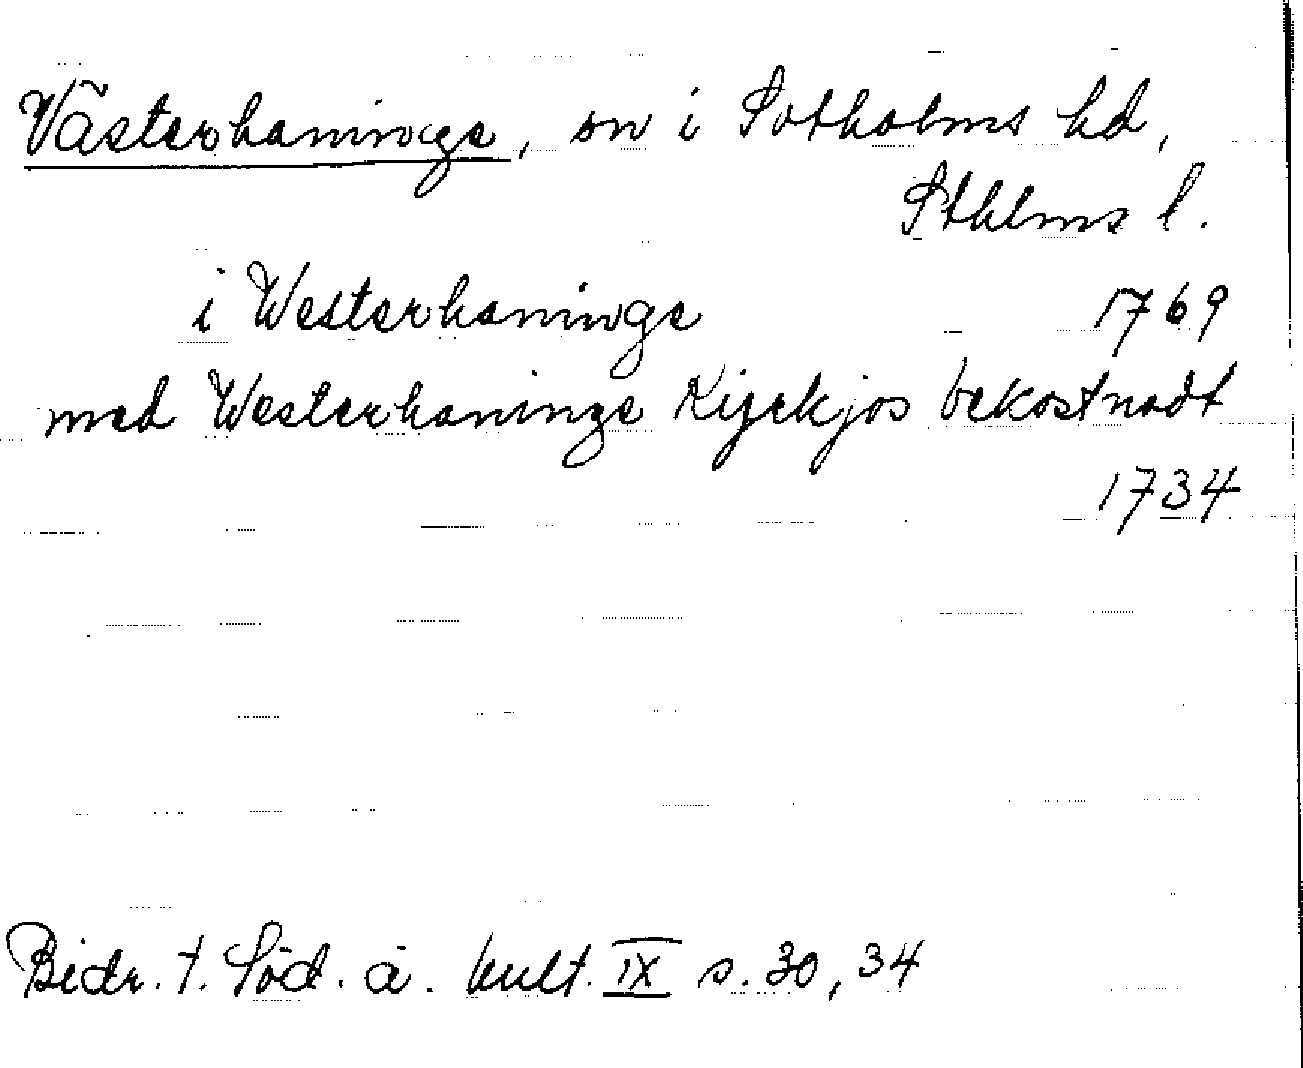 Västerhaninge, sn i Sotholms hd,
Sthlms l.
i Westerhaninge 1769
med Westerhaninge Kijrkjos bekostnadt
1734
Bidr. t. Söd. ä. kult. IX s. 30, 34